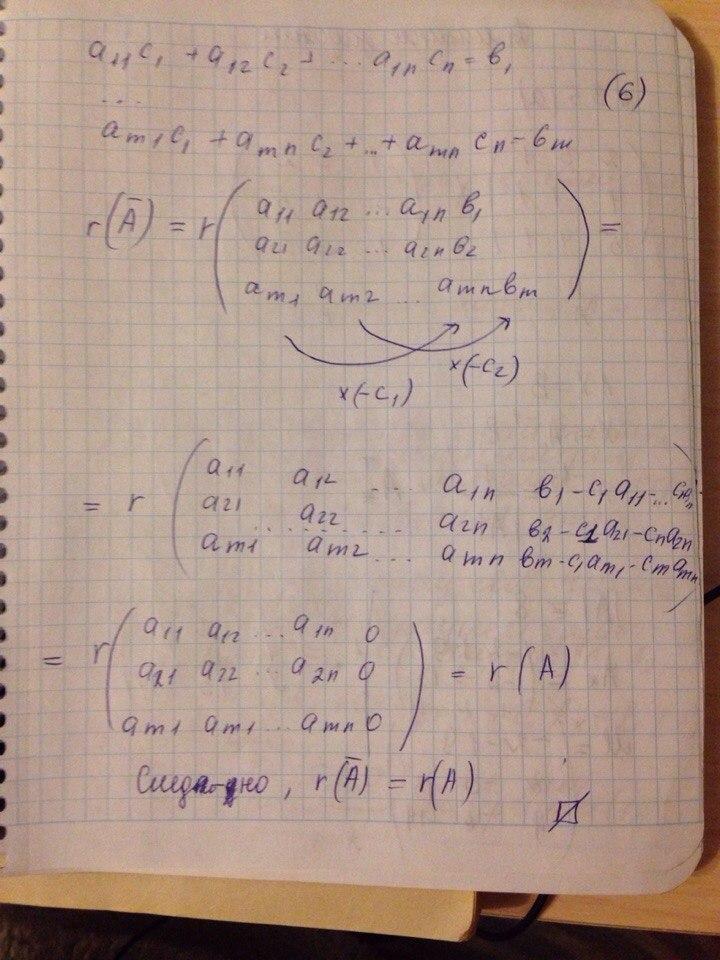 a₁₁c₁ + a₁₂c₂ + ... a₁ₙcₙ = b₁
...
(6)
aₘ₁c₁ + aₘₙc₂ + ... + aₘₙcₙ - bₘ
r(Ā) = r( a₁₁ a₁₂ ... a₁ₙ b₁
a₂₁ a₂₂ ... a₂ₙ b₂
aₘ₁ aₘ₂ ... aₘₙ bₘ ) =
×(-c₁) ×(-c₂)
= r ( a₁₁ a₁₂ ... a₁ₙ b₁ - c₁a₁₁ - ... cₙa₁ₙ
a₂₁ a₂₂ ... a₂ₙ b₂ - c₁a₂₁ - cₙa₂ₙ
aₘ₁ aₘ₂ ... aₘₙ bₘ - c₁aₘ₁ - cₘaₘₙ )
= r( a₁₁ a₁₂ ... a₁ₙ 0
a₂₁ a₂₂ ... a₂ₙ 0
aₘ₁ aₘ₁ ... aₘₙ 0 ) = r(A)
След-но, r(Ā) = r(A)